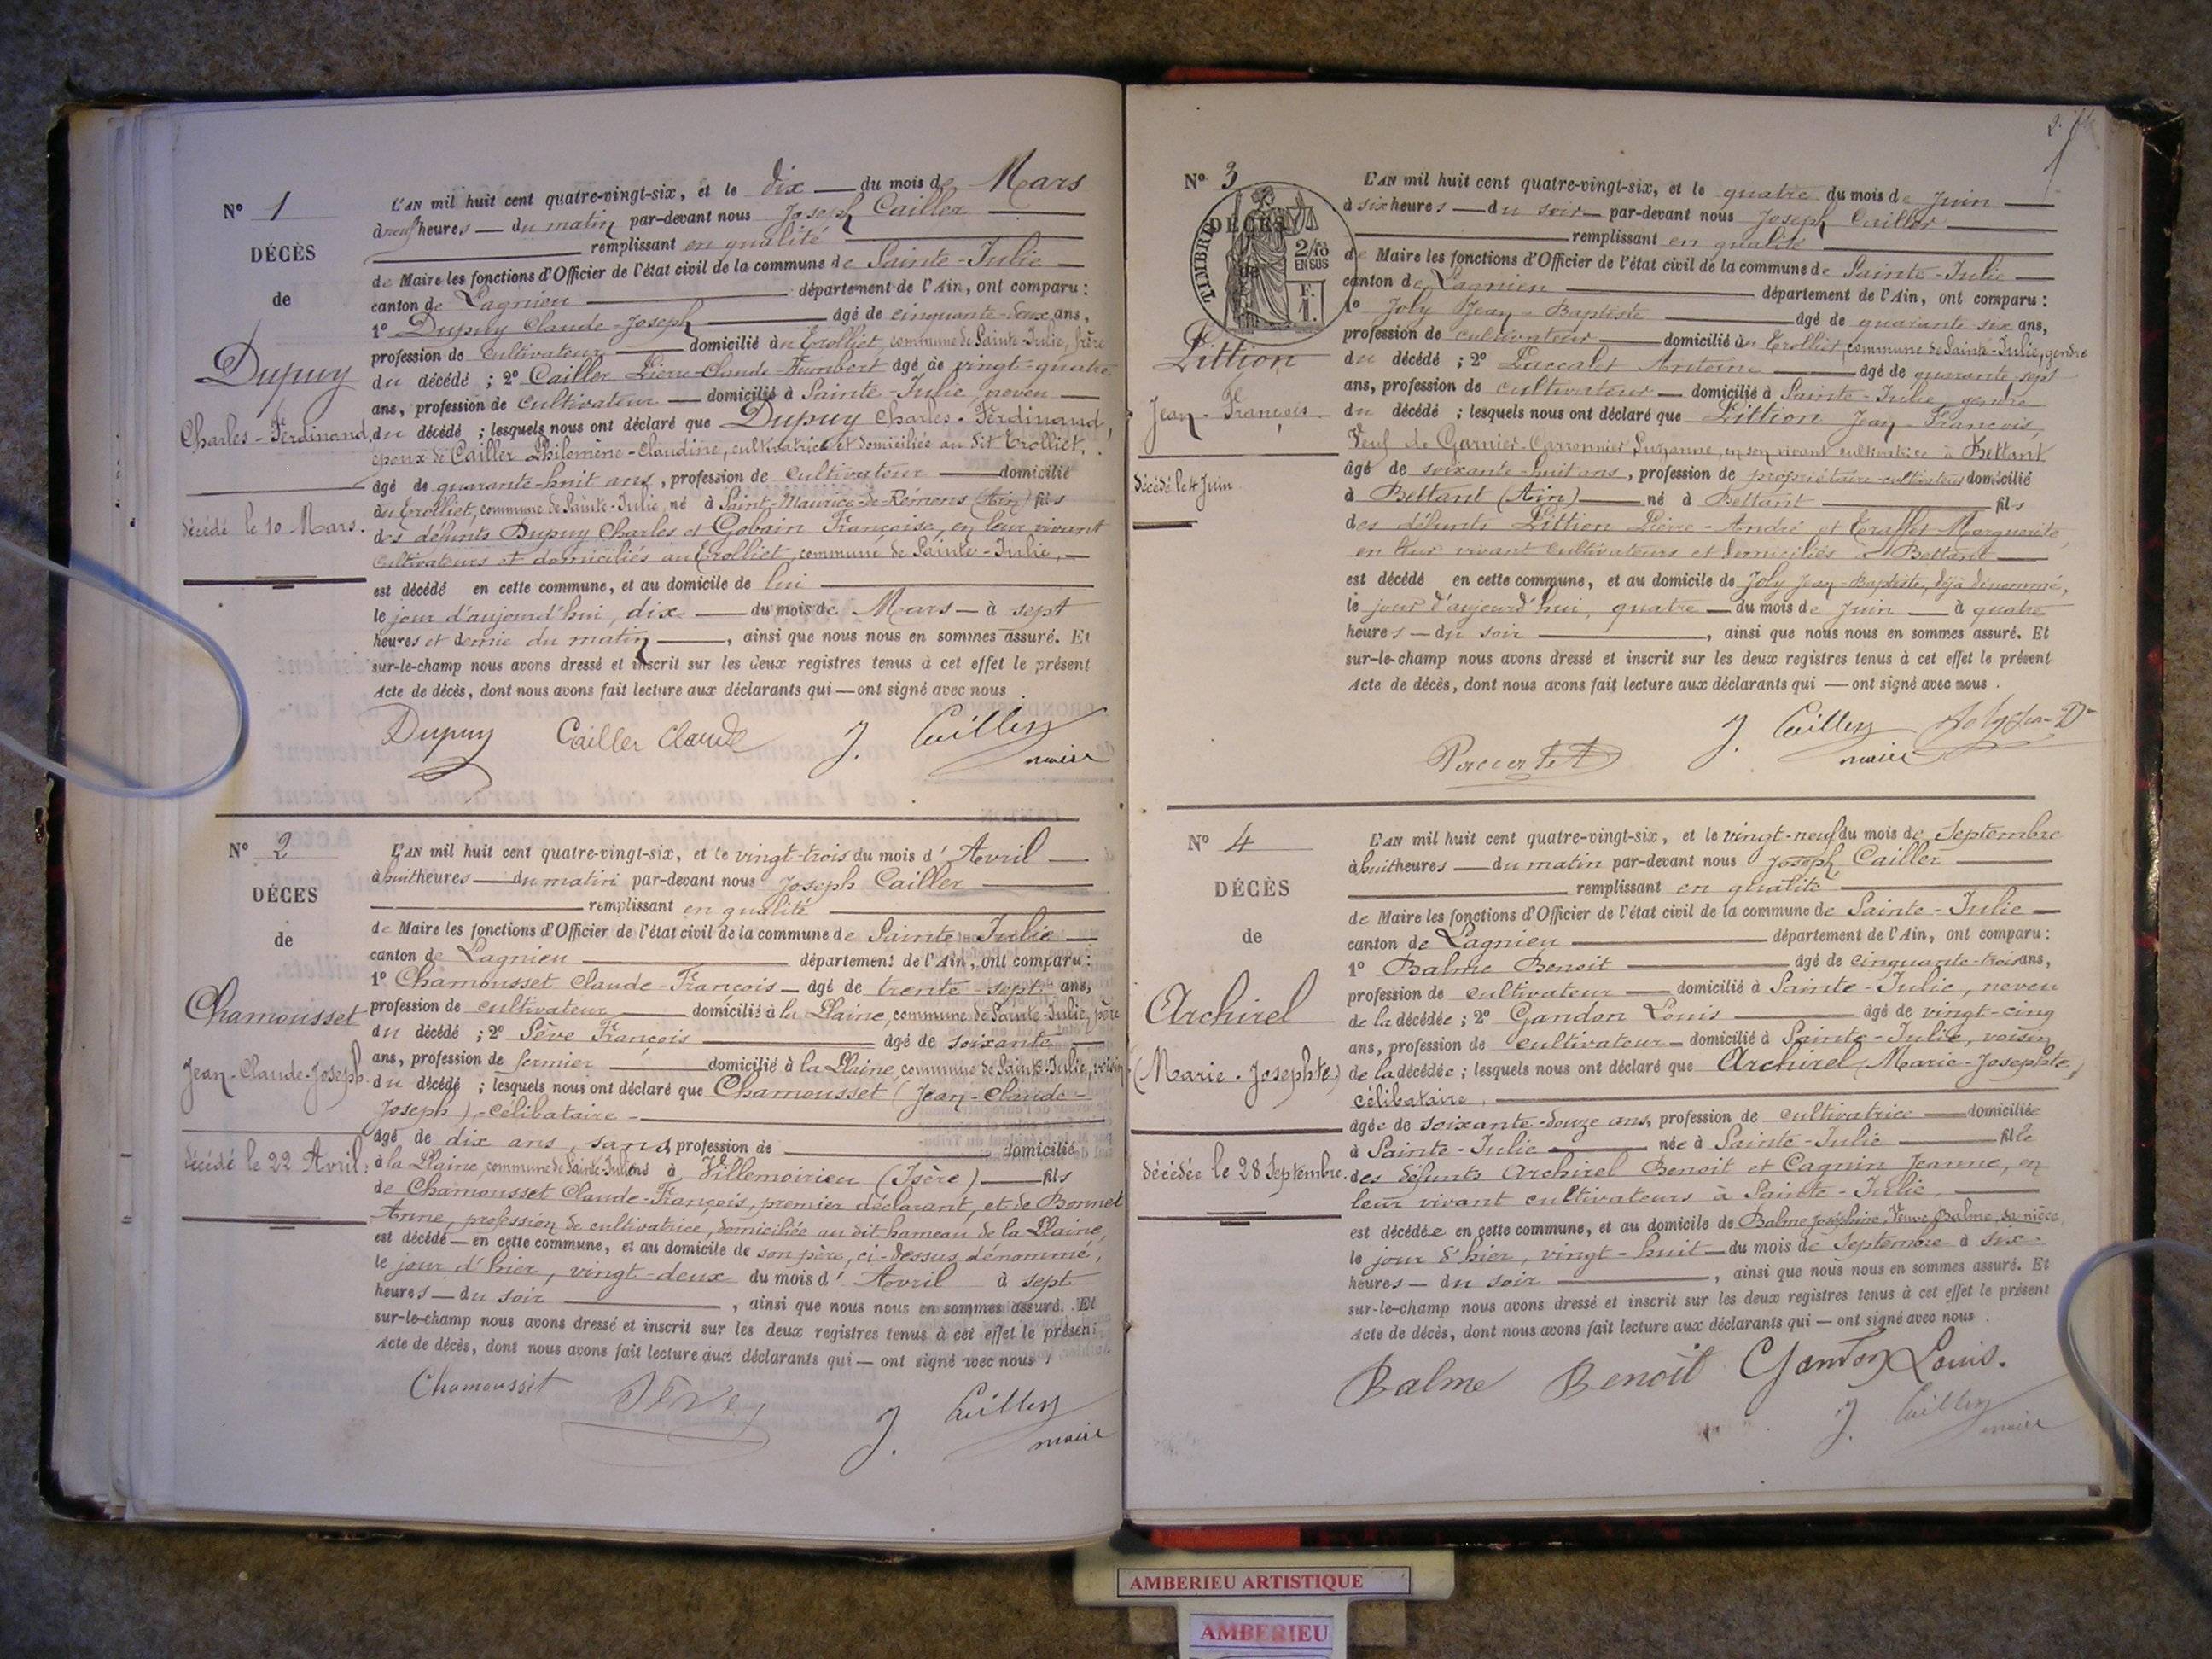 N° 1
DÉCÈS
de
Dupuy
Charles-Ferdinand
décédé le 10 Mars.
L'AN mil huit cent quatre-vingt-six, et le dix — du mois de Mars
à neuf heures — du matin par-devant nous Joseph Cailler —
— remplissant en qualité —
de Maire les fonctions d'Officier de l'état civil de la commune de Sainte-Julie —
canton de Lagnieu — département de l'Ain, ont comparu :
1° Dupuy Claude-Joseph — âgé de cinquante-deux ans,
profession de cultivateur — domicilié au Trolliet, commune de Sainte-Julie, frère
du décédé ; 2° Cailler Pierre-Claude-Humbert âgé de vingt-quatre
ans, profession de cultivateur — domicilié à Sainte-Julie, neveu —
du décédé ; lesquels nous ont déclaré que Dupuy Charles-Ferdinand,
époux de Cailler Philomène-Claudine, cultivatrice et domiciliée au dit Trolliet,
âgé de quarante-huit ans, profession de cultivateur — domicilié
au Trolliet, commune de Sainte-Julie, né à Saint-Maurice-de-Rémens (Ain) fils
des défunts Dupuy Charles et Gobain Françoise, en leur vivant
cultivateurs et domiciliés au Trolliet, commune de Sainte-Julie, —
est décédé en cette commune, et au domicile de lui —
le jour d'aujourd'hui, dix — du mois de Mars — à sept
heures et demie du matin —, ainsi que nous nous en sommes assuré. Et
sur-le-champ nous avons dressé et inscrit sur les deux registres tenus à cet effet le présent
Acte de décès, dont nous avons fait lecture aux déclarants qui — ont signé avec nous.
Dupuy Cailler Claude J. Cailler
maire
N° 2
DÉCES
de
Chamousset
Jean-Claude-Joseph
décédé le 22 Avril.
L'AN mil huit cent quatre-vingt-six, et le vingt-trois du mois d'Avril —
à huit heures — du matin par-devant nous Joseph Cailler —
— remplissant en qualité —
de Maire les fonctions d'Officier de l'état civil de la commune de Sainte-Julie —
canton de Lagnieu — département de l'Ain, ont comparu :
1° Chamousset Claude-François — âgé de trente-sept ans,
profession de cultivateur — domicilié à la Plaine, commune de Sainte-Julie, père
du décédé ; 2° Sève François — âgé de soixante —
ans, profession de fermier — domicilié à la Plaine, commune de Sainte-Julie, voisin
du décédé ; lesquels nous ont déclaré que Chamousset (Jean-Claude-
Joseph), célibataire —
âgé de dix ans, sans profession de — domicilié
à la Plaine, commune de Sainte-Julie né à Villemoirieu (Isère) — fils
de Chamousset Claude-François, premier déclarant, et de Bonnet
Anne, profession de cultivatrice, domiciliée au dit hameau de la Plaine,
est décédé — en cette commune, et au domicile de son père, ci-dessus dénommé,
le jour d'hier, vingt-deux du mois d'Avril à sept
heures — du soir —, ainsi que nous nous en sommes assuré. Et
sur-le-champ nous avons dressé et inscrit sur les deux registres tenus à cet effet le présent
Acte de décès, dont nous avons fait lecture aux déclarants qui — ont signé avec nous.
Chamousset Sève J. Cailler
maire
2.
N° 3
DÉCÈS
de
TIMBRE
2/10
EN SUS
F.
1.
Pittion
Jean-François
décédé le 4 Juin.
L'AN mil huit cent quatre-vingt-six, et le quatre du mois de Juin —
à six heures — du soir — par-devant nous Joseph Cailler —
— remplissant en qualité —
de Maire les fonctions d'Officier de l'état civil de la commune de Sainte-Julie —
canton de Lagnieu — département de l'Ain, ont comparu :
1° Joly Jean-Baptiste — âgé de quarante six ans,
profession de cultivateur — domicilié au Trolliet, commune de Sainte-Julie, gendre
du décédé ; 2° Paccalet Antoine — âgé de quarante-sept
ans, profession de cultivateur — domicilié à Sainte-Julie, gendre
du décédé ; lesquels nous ont déclaré que Pittion Jean-François,
Veuf de Garnier-Carronnier Suzanne, en son vivant cultivatrice à Bettant
âgé de soixante-huit ans, profession de propriétaire-cultivateur domicilié
à Bettant (Ain) — né à Bettant — fils
des défunts Pittion Pierre-André et Traffet Marguerite,
en leur vivant cultivateurs et domiciliés à Bettant —
est décédé en cette commune, et au domicile de Joly Jean-Baptiste, déjà dénommé,
le jour d'aujourd'hui, quatre — du mois de Juin — à quatre
heures — du soir —, ainsi que nous nous en sommes assuré. Et
sur-le-champ nous avons dressé et inscrit sur les deux registres tenus à cet effet le présent
Acte de décès, dont nous avons fait lecture aux déclarants qui — ont signé avec nous.
Paccalet J. Cailler Joly Jean-B
maire
N° 4
DÉCÈS
de
Archirel
(Marie-Josephte)
décédée le 28 Septembre.
L'AN mil huit cent quatre-vingt-six, et le vingt-neuf du mois de Septembre
à huit heures — du matin par-devant nous Joseph Cailler —
— remplissant en qualité —
de Maire les fonctions d'Officier de l'état civil de la commune de Sainte-Julie —
canton de Lagnieu — département de l'Ain, ont comparu :
1° Balme Benoit — âgé de cinquante-trois ans,
profession de cultivateur — domicilié à Sainte-Julie, neveu
de la décédée ; 2° Gandon Louis — âgé de vingt-cinq
ans, profession de cultivateur — domicilié à Sainte-Julie, voisin
de la décédée ; lesquels nous ont déclaré que Archirel (Marie-Josephte)
célibataire, —
âgée de soixante-douze ans, profession de cultivatrice — domiciliée
à Sainte-Julie — née à Sainte-Julie — fille
des défunts Archirel Benoit et Cagnin Jeanne, en
leur vivant cultivateurs à Sainte-Julie, —
est décédée en cette commune, et au domicile de Balme Joséphine, Veuve Balme, sa nièce,
le jour d'hier, vingt-huit — du mois de Septembre à six
heures — du soir —, ainsi que nous nous en sommes assuré. Et
sur-le-champ nous avons dressé et inscrit sur les deux registres tenus à cet effet le présent
Acte de décès, dont nous avons fait lecture aux déclarants qui — ont signé avec nous.
Balme Benoît Gandon Louis.
J. Cailler
maire
AMBERIEU ARTISTIQUE
AMBERIEU